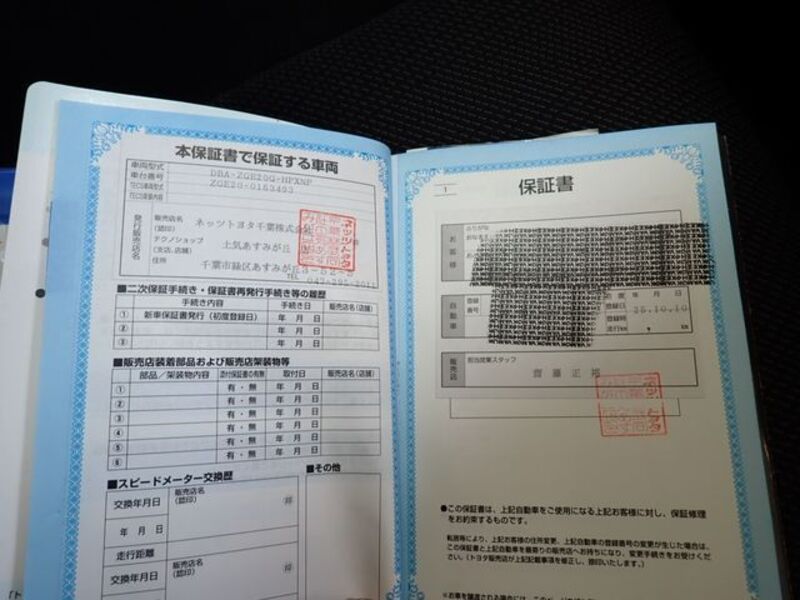 本保証書で保証する車両
車両型式 DBA-ZGE20G-HPXNP
車台番号 ZGE20-0163493
TECS車両型式
TECS車両内容
発行販売店名
販売店名 ネッツトヨタ千葉株式会社
(認印)
テクノショップ 土気あすみが丘
(支店、店舗)
住所 千葉市緑区あすみが丘3-52-5
TEL 043-295-2011
■二次保証手続き・保証書再発行手続き等の履歴
手続き内容 手続き日 販売店名(店舗)
① 新車保証書発行(初度登録日) 年 月 日
② 年 月 日
③ 年 月 日
■販売店装着部品および販売店架装物等
部品/架装物内容 添付保証書の有無 取付日 販売店名(店舗)
① 有・無 年 月 日
② 有・無 年 月 日
③ 有・無 年 月 日
④ 有・無 年 月 日
⑤ 有・無 年 月 日
⑥ 有・無 年 月 日
■スピードメーター交換歴
交換年月日 販売店名
(認印) 印
年 月 日
走行距離
交換年月日 販売店名
(認印) 印
■その他
1
保証書
お客様
ふりがな
おなまえ
自動車
登録
番号
初度 年 月 日
登録日 25.10.10
登録時
走行km km
販売店
担当営業スタッフ
齋藤正裕
●この保証書は、上記自動車をご使用になる上記お客様に対し、保証修理
をお約束するものです。
転居等により、上記お客様の住所変更、上記自動車の登録番号の変更が生じた場合は、
この保証書と上記自動車を最寄りの販売店へお持ちになり、変更手続きをお受けくだ
さい。(トヨタ販売店が上記記載事項を修正し、捺印いたします。)
※お車を譲渡される場合には、このメ